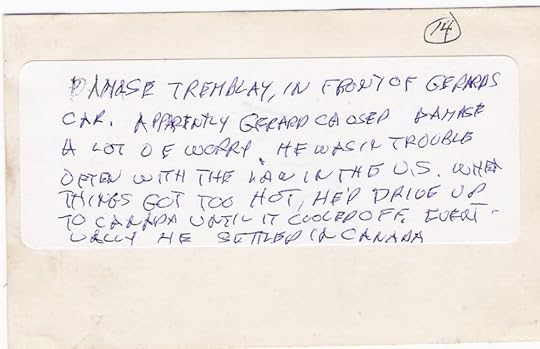 14
DAMASE TREMBLAY, IN FRONT OF GERARDS
CAR. APPARENTLY GERARD CAUSED DAMASE
A LOT OF WORRY. HE WAS IN TROUBLE
OFTEN WITH THE LAW IN THE U.S. WHEN
THINGS GOT TOO HOT, HE'D DRIVE UP
TO CANADA UNTIL IT COOLED OFF. EVENT-
UALLY HE SETTLED IN CANADA